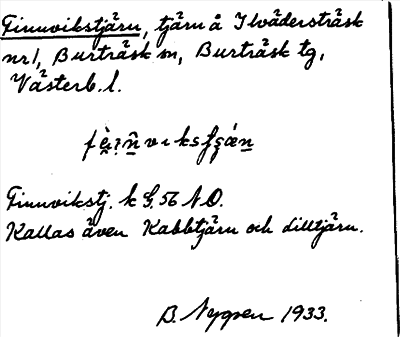 Finnvikstjärn, tjärn å Ilvädersträsk
nr 1, Burträsk sn, Burträsk tg,
Västerb. l.
Finnvikstj. k G. 56 N.O.
Kallas även Kabbtjärn och lilltjärn.
B. Nygren 1933.